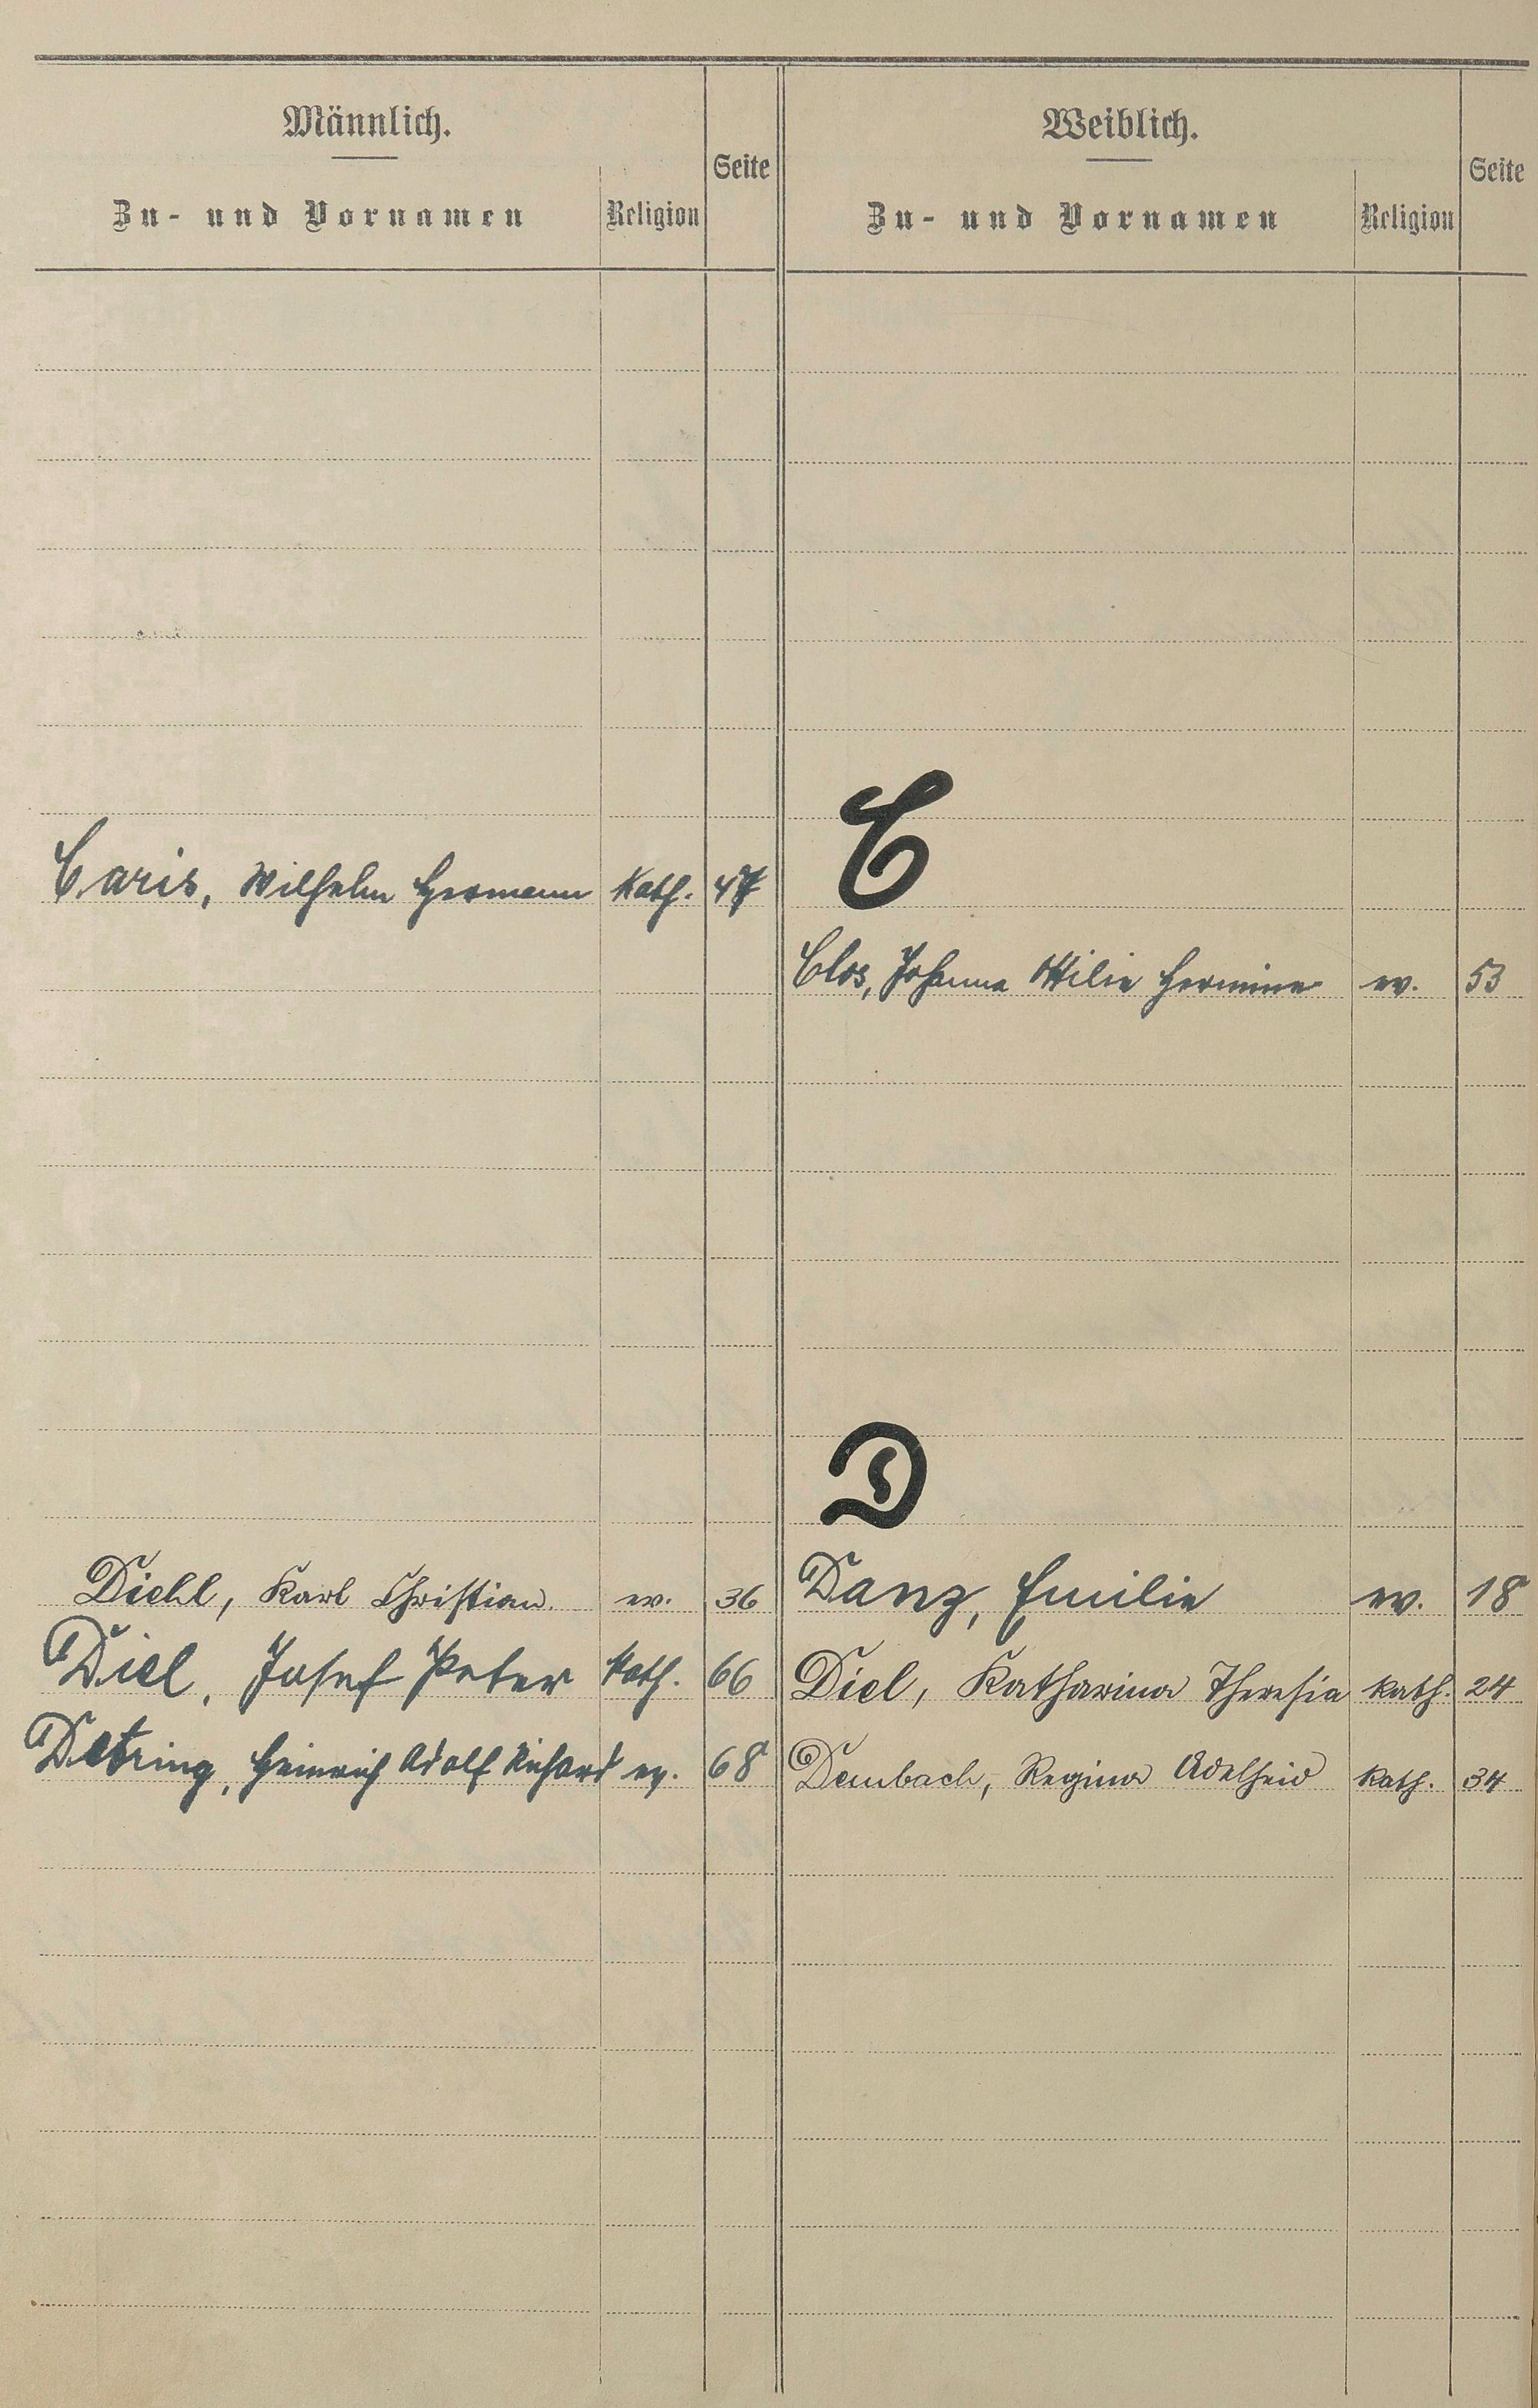 Männlich.
Zu- und Vornamen
Religion
Seite
Weiblich.
Zu- und Vornamen
Religion
Seite
C
Caris, Wilhelm Hermann kath. 47
Clos, Johanna Ottilie Hermine ev. 53
D
Diehl, Karl Christian. ev. 36
Danz, Emilie ev. 18
Diel, Josef Peter kath. 66
Diel, Katharina Theresia kath. 24
Detring, Heinrich Adolf Richard ev. 68
Dembach, Regina Adelheid kath. 34